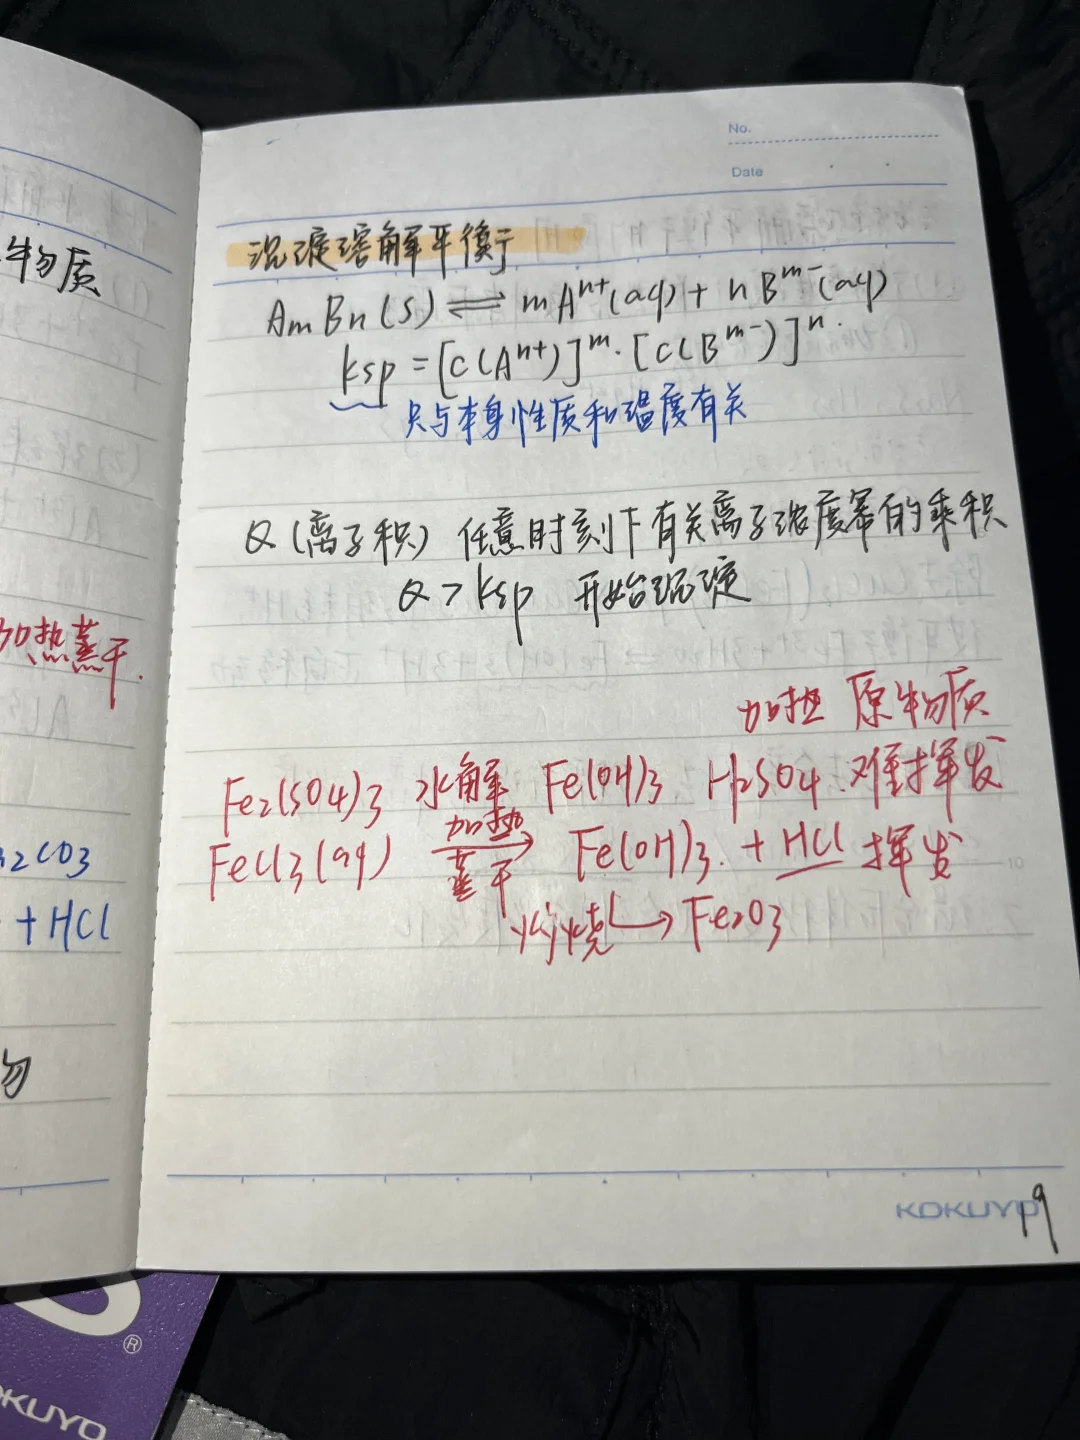 物质
加热蒸干.
2CO3
+HCl
No.
Date
沉淀溶解平衡
AmBn(s) ⇌ mAⁿ⁺(aq) + nBᵐ⁻(aq)
ksp = [c(Aⁿ⁺)]ᵐ · [c(Bᵐ⁻)]ⁿ.
只与本身性质和温度有关
Q (离子积) 任意时刻下有关离子浓度幂的乘积
Q > ksp 开始沉淀
加热 原物质
Fe2(SO4)3 水解 Fe(OH)3 H2SO4.难挥发
FeCl3(aq) 加热蒸干→ Fe(OH)3. + HCl 挥发
灼烧 → Fe2O3
10
KOKUYO
19
®
KUYO